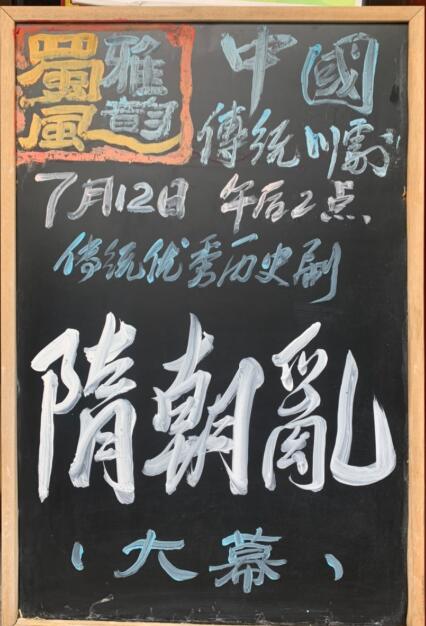 蜀風雅韵
中國
傳統川劇
7月12日 午后2点
传统优秀历史剧
隋朝亂
(大幕)